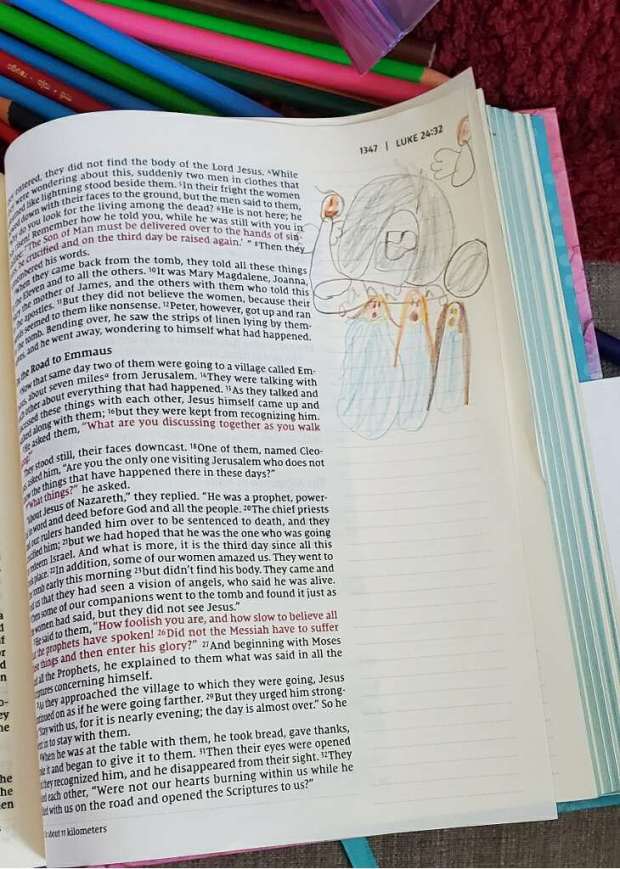 1347 | LUKE 24:32
entered, they did not find the body of the Lord Jesus. ⁴While
were wondering about this, suddenly two men in clothes that
like lightning stood beside them. ⁵In their fright the women
down with their faces to the ground, but the men said to them,
do you look for the living among the dead? ⁶He is not here; he
Remember how he told you, while he was still with you in
'The Son of Man must be delivered over to the hands of sin-
crucified and on the third day be raised again.' ” ⁸Then they
his words.
they came back from the tomb, they told all these things
Eleven and to all the others. ¹⁰It was Mary Magdalene, Joanna,
the mother of James, and the others with them who told this
apostles. ¹¹But they did not believe the women, because their
seemed to them like nonsense. ¹²Peter, however, got up and ran
tomb. Bending over, he saw the strips of linen lying by them-
and he went away, wondering to himself what had happened.
the Road to Emmaus
that same day two of them were going to a village called Em-
about seven miles from Jerusalem. ¹⁴They were talking with
other about everything that had happened. ¹⁵As they talked and
these things with each other, Jesus himself came up and
along with them; ¹⁶but they were kept from recognizing him.
asked them, “What are you discussing together as you walk
stood still, their faces downcast. ¹⁸One of them, named Cleo-
asked him, “Are you the only one visiting Jerusalem who does not
the things that have happened there in these days?”
“What things?” he asked.
“About Jesus of Nazareth,” they replied. “He was a prophet, power-
in word and deed before God and all the people. ²⁰The chief priests
our rulers handed him over to be sentenced to death, and they
him; ²¹but we had hoped that he was the one who was going
redeem Israel. And what is more, it is the third day since all this
place. ²²In addition, some of our women amazed us. They went to
tomb early this morning ²³but didn't find his body. They came and
us that they had seen a vision of angels, who said he was alive.
some of our companions went to the tomb and found it just as
women had said, but they did not see Jesus.”
He said to them, “How foolish you are, and how slow to believe all
the prophets have spoken! ²⁶Did not the Messiah have to suffer
things and then enter his glory?” ²⁷And beginning with Moses
all the Prophets, he explained to them what was said in all the
concerning himself.
As they approached the village to which they were going, Jesus
on as if he were going farther. ²⁹But they urged him strong-
“Stay with us, for it is nearly evening; the day is almost over.” So he
in to stay with them.
When he was at the table with them, he took bread, gave thanks,
it and began to give it to them. ³¹Then their eyes were opened
they recognized him, and he disappeared from their sight. ³²They
each other, “Were not our hearts burning within us while he
with us on the road and opened the Scriptures to us?”
about 11 kilometers